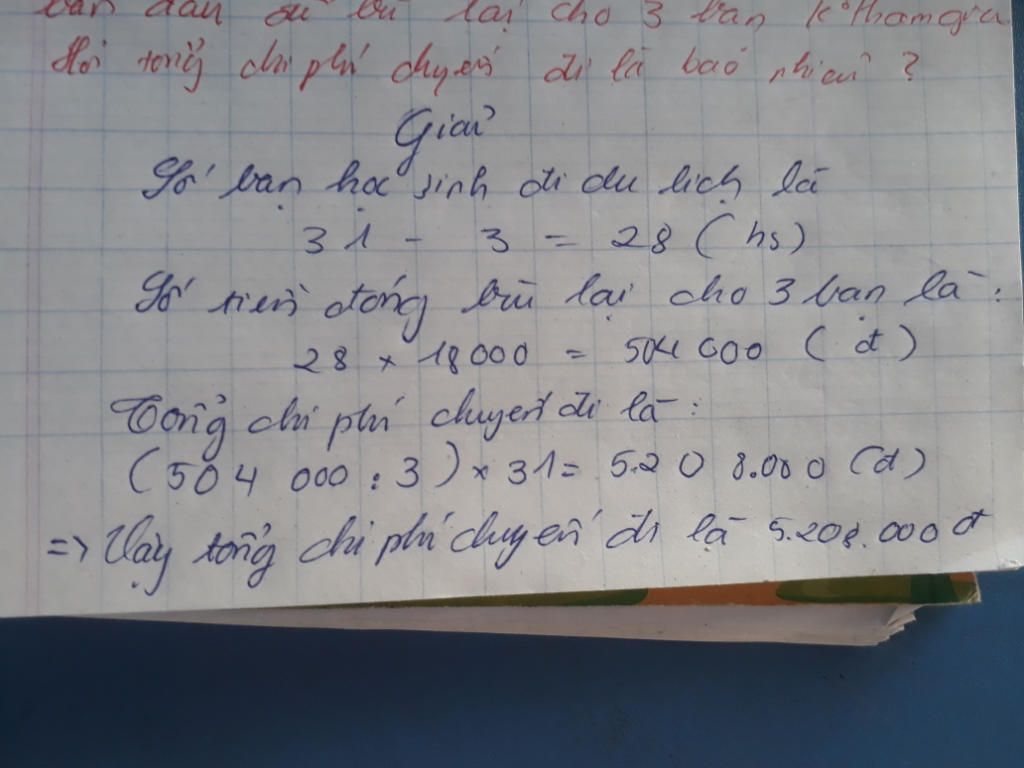 ban đầu để bù lại cho 3 bạn k° tham gia.
Hỏi tổng chi phí chuyến đi là bao nhiêu ?
Giải
Số bạn học sinh đi du lịch là
31 - 3 = 28 (hs)
Số tiền đóng bù lại cho 3 bạn là :
28 × 18 000 = 504 000 ( đ )
Tổng chi phí chuyến đi là :
(504 000 : 3) × 31 = 5.208.000 (đ)
=> Vậy tổng chi phí chuyến đi là 5.208.000 đ